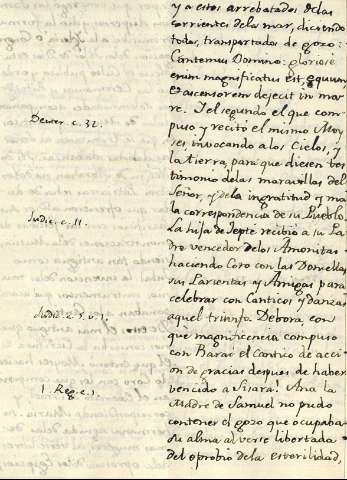 y a estos arrebatados de las
corrientes de la mar, diciendo
todos, transportados de gozo:
Cantemus Domino: gloriosè
enim magnificatus est, equum,
et ascensorem dejecit in ma
re. Y el segundo el que com-
puso y recitó el mismo Moy
ses, invocando a los Cielos, y
la tierra, para que diesen tes
timonio de las maravillas del
Señor, y de la ingratitud y ma
la correspondencia de su Pueblo.
La hija de Jepte recibió a su Pa
dre vencedor de los Amonitas
haciendo Coro con las Doncellas
sus Parientas y Amigas para
celebrar con Canticos y danzas
aquel triunfo. Debora, con
què magnificencia compuso
con Barac el Cantico de acci
on de gracias despues de haber
vencido a Sisara! Ana la
Madre de Samuel no pudo
contener el gozo que ocupaba
su alma al verse libertada
del oprobio de la esterilidad,
Deuter. c. 32.
Judic. c. 11.
Judic. c. 5. v. 1.
1. Reg. c. 1.